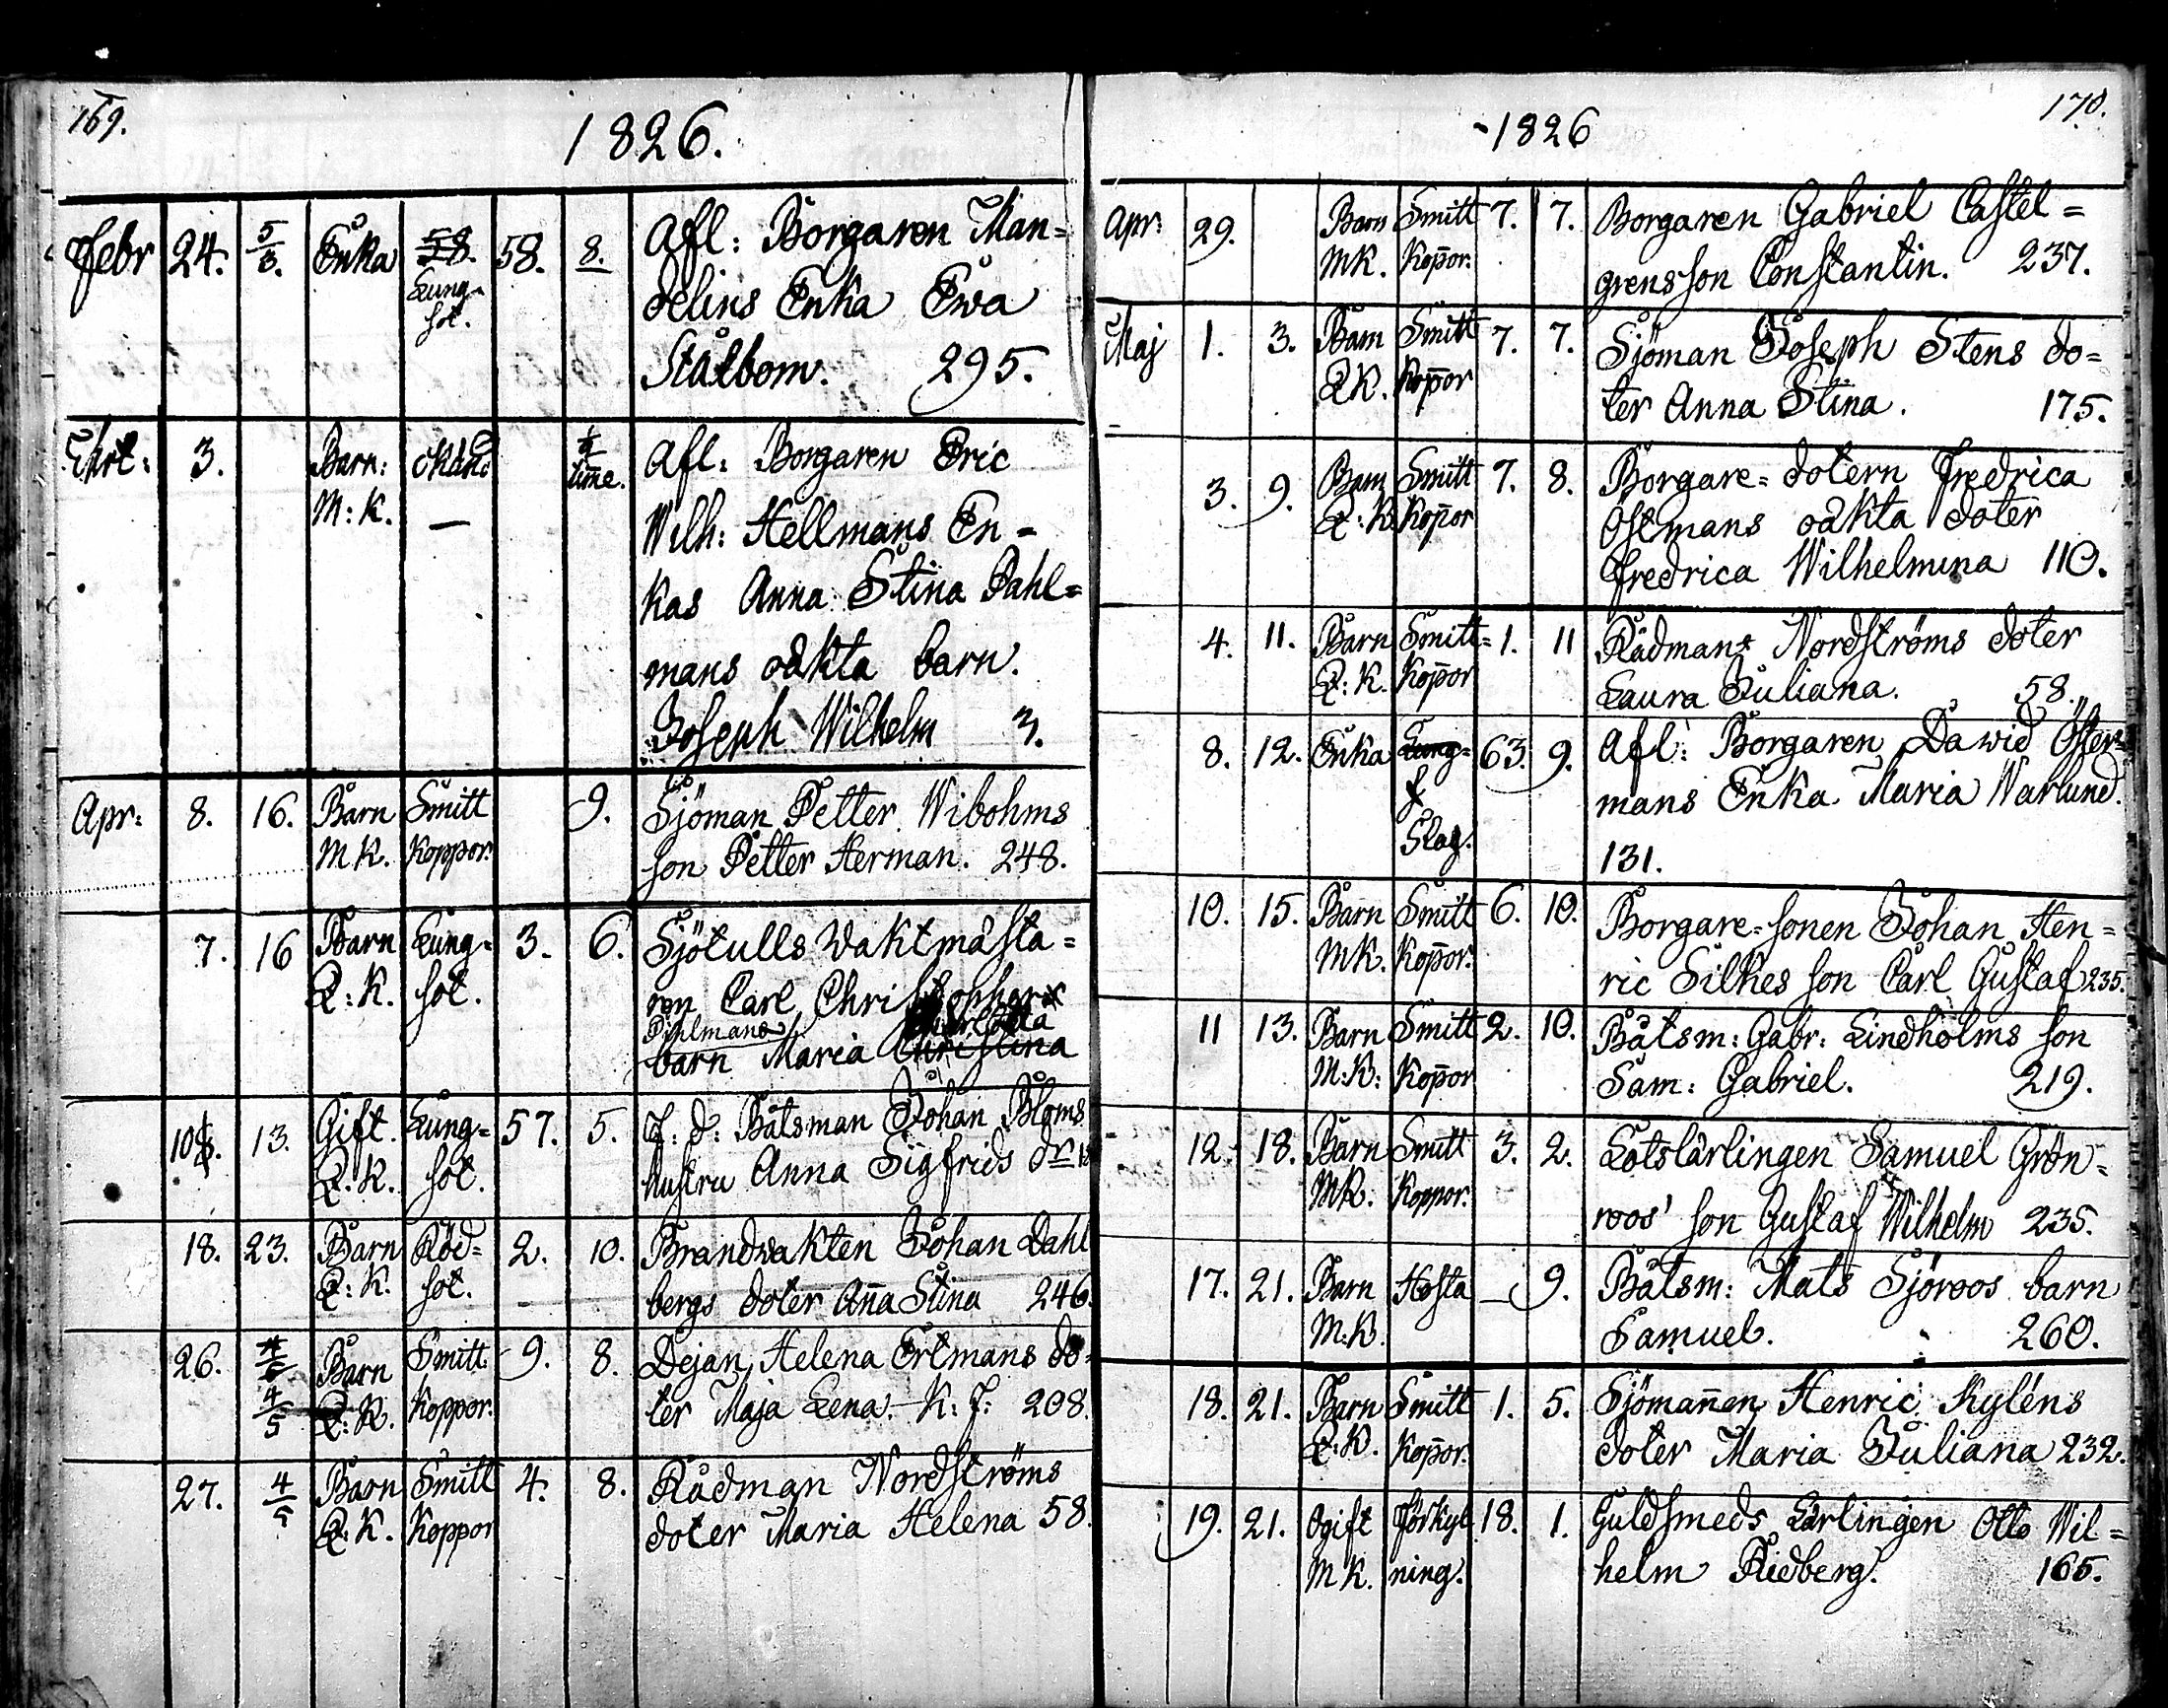 169.
1826.
Febr 24. 5/3. Enka 58. 58. 8. Afl: Borgaren Man=
Lung- delins Enka Ewa
sot. Stålbom. 295.
3. Barn: okänd ½ Afl: Borgaren Eric
M: K. — timme. Wilh: Hellmans En=
kas Anna Stina Dahl=
mans oäkta barn.
Joseph Wilhelm 3.
Apr: 8. 16. Barn Smitt 9. Sjöman Petter Wibohms
M K. Koppor. son Petter Herman. 248.
7. 16 Barn Lung= 3. 6. Sjötulls Vaktmästa=
Q: K. sot. ren Carl Christopher
Dihlmans Charlotta
barn Maria Christina
10. 13. Gift. Lung= 57. 5. F. d: Båtsman Johan Bloms
Q. K. sot. hustru Anna Sigfrids dr
18. 23. Barn Röd= 2. 10. Brandvakten Johan Dahl
Q: K. sot. bergs doter Aña Stina 246.
26. 4/5 Barn Smitt 9. 8. Dejan Helena Ertmans do=
4/5 Q: K. Koppor. ter Maja Lena. K. J: 208.
27. 4/5 Barn Smitt 4. 8. Rådman Nordströms
Q: K. Koppor doter Maria Helena 58.
170.
1826
Apr: 29. Barn Smitt 7. 7. Borgaren Gabriel Castel=
MK. Kop̄or. grens son Constantin. 237.
Maj 1. 3. Barn Smitt 7. 7. Sjöman Joseph Stens do=
QK. Kop̄or ter Anna Stina. 175.
3. 9. Barn Smitt 7. 8. Borgare=dotern Fredrica
Q: K Kop̄or Ostmans oäkta doter
Fredrica Wilhelmina 110.
4. 11. Barn Smitt= 1. 11 Rådmans Nordströms doter
Q: K. Kop̄or Laura Juliana. 58.
8. 12. Enka Lung= 63. 9. Afl: Borgaren Dawid Öster=
mans Enka Maria Warlund.
Slag. 131.
10. 15. Barn Smitt 6. 10. Borgare-sonen Johan Hen=
MK. Kop̄or. ric Silkes son Carl Gustaf 235.
11 13. Barn Smitt 2. 10. Båtsm: Gabr: Lindholms son
M: K: Kop̄or Sam: Gabriel. 219.
12. 18. Barn Smitt 3. 2. Lotslärlingen Samuel Grön=
MK. Koppor. roos' son Gustaf Wilhelm 235.
17. 21. Barn Hosta — 9. Båtsm: Mats Sjöroos barn
M: K. Samuel. 260.
18. 21. Barn Smitt 1. 5. Sjömañen Henric Kyléns
Q: K. Kop̄or. doter Maria Juliana 232.
19. 21. Ogift Förkyl 18. 1. Guldsmeds Lärlingen Otto Wil=
M K. ning. helm Ridberg. 165.